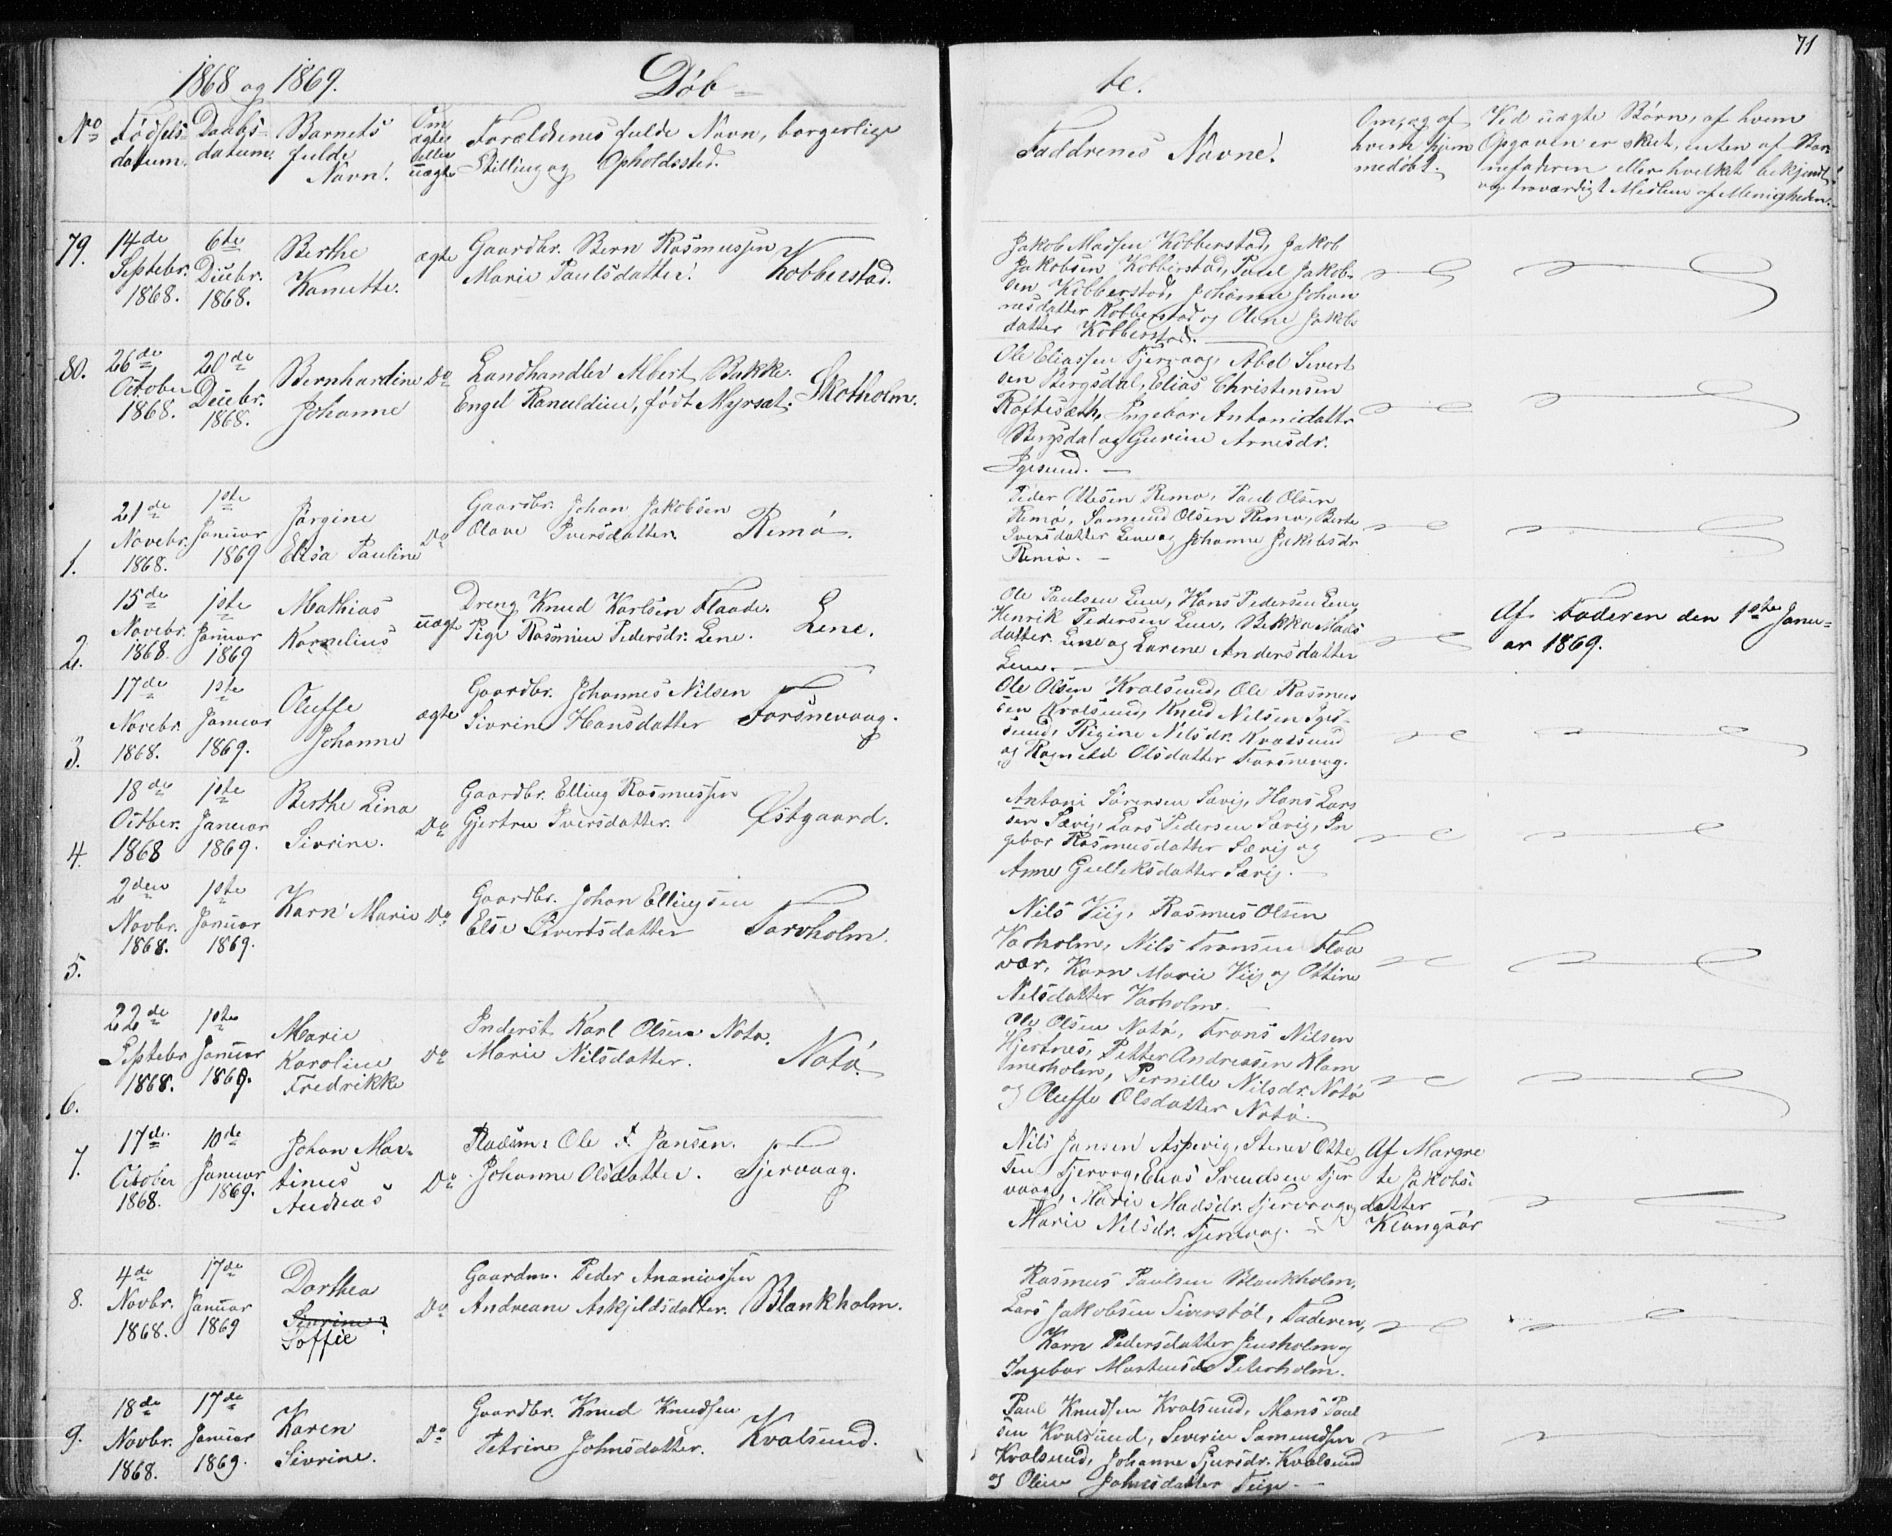 71
1868 og 1869. Døb-
te.
No Fødsels- datum. Daabs- datum. Barnets fulde Navn. Om ægte eller uægte Forældrenes fulde Navn, borgerlige Stilling og Opholdssted.
Faddrenes Navne. Om, og af hvem hjem medøbt. Ved uægte Børn, af hvem Opgaven er skeet, enten af Bar nefaderen eller hvilket bekjendt og troværdigt Medlem af Menigheden.
79. 14de Septebr. 1868. 6te Decbr. 1868. Berthe Kanutte. ægte Gaardbr. Bern Rasmussen
Marie Paulsdatter. Kobberstad.
Jakob Madsen Kobberstad, Jakob
Jakobsen Kobberstad, Paul Jakob-
sen Kobberstad, Johanne Johan
nesdatter Kobberstad og Olene Jakobs
datter Kobberstad.
80. 26de October 1868. 20de Decbr. 1868. Bernhardine Johanne Do Landhandler Albert Bakke.
Engel Ranuldine, født Myrsat. Skotholm.
Ole Eliassen Tjervaag, Abel Sivert
sen Bergsdal, Elias Christensen
Raftesæth, Ingebor Antonidattr
Bergsdal og Gurine Arnesdr.
Igesund.
1. 21de Novebr. 1868. 1ste Januar 1869 Jørgine Elisa Pauline Do Gaardbr. Johan Jakobsen
Olave Iversdatter. Remø.
Peder Ottesen Remø, Paul Olsen
Remø, Samund Olsen Remø, Berte
Iversdatter Lene og Johanne Jakobsdr
Remø.
2. 15de Novebr. 1868. 1ste Januar 1869 Mathias Kornelius uægte Dreng Knud Karlsen Flaade.
Pige Rasmine Pedersdr. Lene. Lene.
Ole Paulsen Lene, Hans Pedersen Lene
Henrik Pedersen Lene, Bekka Mads
datter Lene og Larine Andersdatter
Lene.
Af Faderen den 1ste Janu-
ar 1869.
3. 17de Novebr. 1868. 1ste Januar 1869. Oluffe Johanne ægte Gaardbr. Johannes Nilsen
Sivrine Hansdatter Torsnevaag.
Ole Olsen Kvalsund, Ole Rasmus
sen Kvalsund, Knud Nilsen Iges-
sund, Rigine Nilsdr. Kvalsund
og Ragnild Olsdatter Torsnevag.
4. 18de Octber. 1868 1ste Januar 1869. Berthe Lina Sivrine. Do Gaardbr. Elling Rasmussen
Gjertru Iversdatter. Østgaard.
Antoni Sørensen Sævig, Hans Lars
sen Sævig, Lars Pedersen Sævig, In
gebor Rasmusdatter Sævig og
Anne Gulleksdatter Sævig.
5. 2den Novbr. 1868. 1ste Januar 1869. Karn Marie Do Gaardbr. Johan Ellingsen
Else Sivertsdatter Torvholm.
Nils Viig, Rasmus Olsen
Varholm, Nils Fransen Flaa
vær, Karn Marie Viig og Ottine
Nilsdatter Varholm.
6. 22de Septebr 1868. 1ste Januar 1869. Marie Karoline Fredrikke Do Inderst Karl Olsen Notø.
Marie Nilsdatter. Notø
Ole Olsen Notø, Frans Nilsen
Hjertnes, Petter Andreassen Klam
merholm, Pernille Nilsdr. Notø
og Oluffe Olsdatter Notø.
7. 17de October 1868. 10de Januar 1869. Johan Mar- tinus Andreas Do Pladsm: Ole Jansen.
Johanne Olsdatter. Tjervaag.
Nils Jansen Aspevig, Stener Otte
sen Tjervag, Elias Svendsen Tjer
vaag, Marie Madsdr. Tjervaag og
Marie Nilsdr. Tjervaag.
Af Margre
te Jakobs-
datter
Klungsør
8. 4de Novbr. 1868. 17de Januar 1869 Dorthea Sivrine Soffie Do Gaardm. Peder Ananiassen
Andreane Askjeldsdatter. Blankholm.
Rasmus Paulsen Blankholm,
Lars Jakobsen Siverstøl, Faderen,
Karn Pedersdatter Jensholm og
Ingebor Martensdr Peterholm.
9. 18de Novbr. 1868. 17de Januar 1869. Karen Sivrine. Do Gaardbr. Knud Knudsen
Petrine Johnsdatter. Kvalsund.
Paul Knudsen Kvalsund, Mons Paul
sen Kvalsund, Severin Samundsen
Kvalsund, Johanne Sjursdr. Kvalsund
og Oline Johnsdatter Teige.